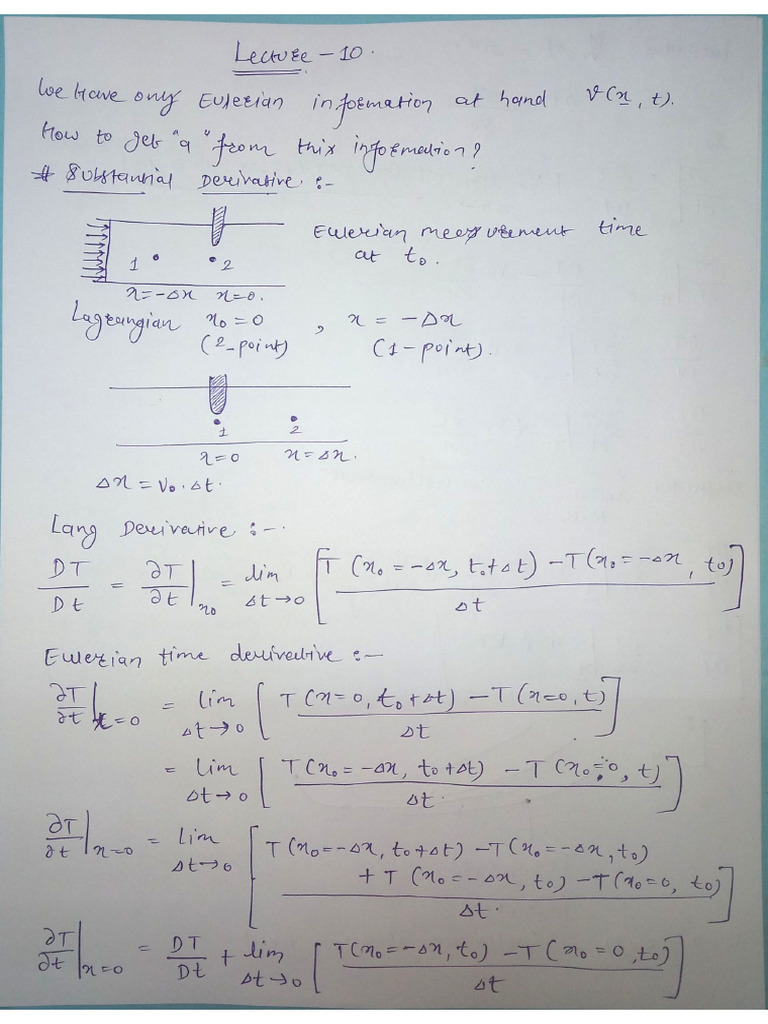 Lecture - 10.
We have only Eulerian information at hand V(x, t).
How to get "a" from this information?
# Substantial Derivative :-
1 2
Eulerian measurement time
at t₀.
x=-Δx x=0.
Lagrangian x₀=0 , x = -Δx
(2-point) (1-point).
1 2
x=0 x=Δx.
Δx = V₀.Δt.
Lang Derivative :-.
DT/Dt = ∂T/∂t|x₀ = lim Δt→0 [T (x₀ = -Δx, t₀+Δt) - T(x₀ = -Δx, t₀) / Δt]
Eulerian time derivative :-
∂T/∂t|x=0 = lim Δt→0 [T(x=0, t₀+Δt) - T(x=0, t) / Δt]
= lim Δt→0 [T(x₀ = -Δx, t₀+Δt) - T(x₀=0, t) / Δt.]
∂T/∂t|x=0 = lim Δt→0 [T(x₀=-Δx, t₀+Δt) - T(x₀=-Δx, t₀)
+ T (x₀=-Δx, t₀) - T(x₀=0, t₀) / Δt.]
∂T/∂t|x=0 = DT/Dt + lim Δt→0 [T(x₀=-Δx, t₀) - T(x₀=0, t₀) / Δt]